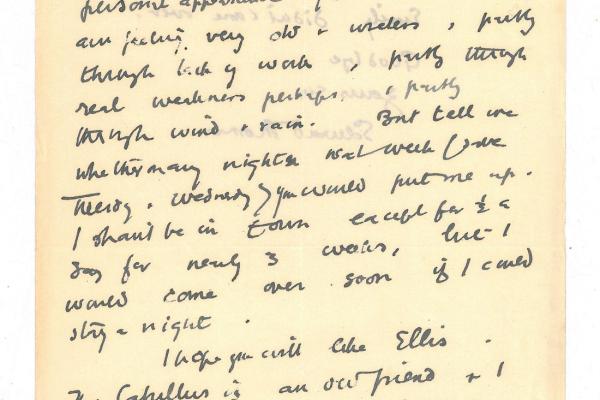 personal appearance
am feeling very old & useless, partly
through lack of work, partly through
real weakness perhaps, & partly
through wind & rain. But tell me
whether any night next week (save
Tuesday & Wednesday) you would put me up.
I shan't be in town except for ½ a
day for nearly 3 weeks, but I
would come over soon if I could
stay a night.
I hope you will like Ellis.
The Catullus is an old friend & I